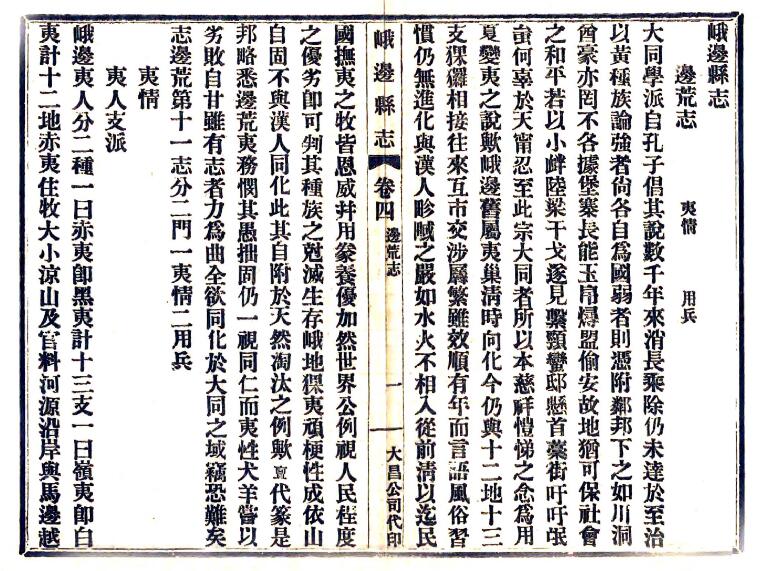 峨邊縣志
邊荒志 夷情 用兵
大同學派自孔子倡其說數千年來消長乘除仍未達於至治
以黃種族論強者尙各自爲國弱者則憑附鄰邦下之如川洞
酋豪亦罔不各據堡寨長能玉帛爆盟偷安故地猶可保社會
之和平若以小衅陸梁干戈遂見繫頸蠻邸懸首藁街吁吁氓
蚩何辜於天甯忍至此宗大同者所以本慈祥愷悌之念爲用
夏變夷之說歟峨邊舊屬夷巢淸時向化今仍與十二地十三
支猓玀相接往來互市交涉屬繁雖效順有年而言語風俗習
慣仍無進化與漢人畛域之嚴如水火不相入從前淸以迄民
峨邊縣志 卷四 邊荒志 一 大昌公司代印
國撫夷之牧皆恩威幷用豢養優加然世界公例視人民程度
之優劣卽可判其種族之尅滅生存峨地猓夷頑梗性成依山
自固不與漢人同化此其自附於天然淘汰之例歟代篆是
邦略悉邊荒夷務憫其愚拙固仍一視同仁而夷性犬羊嘗以
劣敗自甘雖有志者力爲曲全欲同化於大同之域竊恐難矣
志邊荒第十一志分二門一夷情二用兵
夷情
夷人支派
峨邊夷人分二種一曰赤夷卽黑夷計十三支一曰嶺夷卽白
夷計十二地赤夷住牧大小涼山及官料河源沿岸與馬邊越